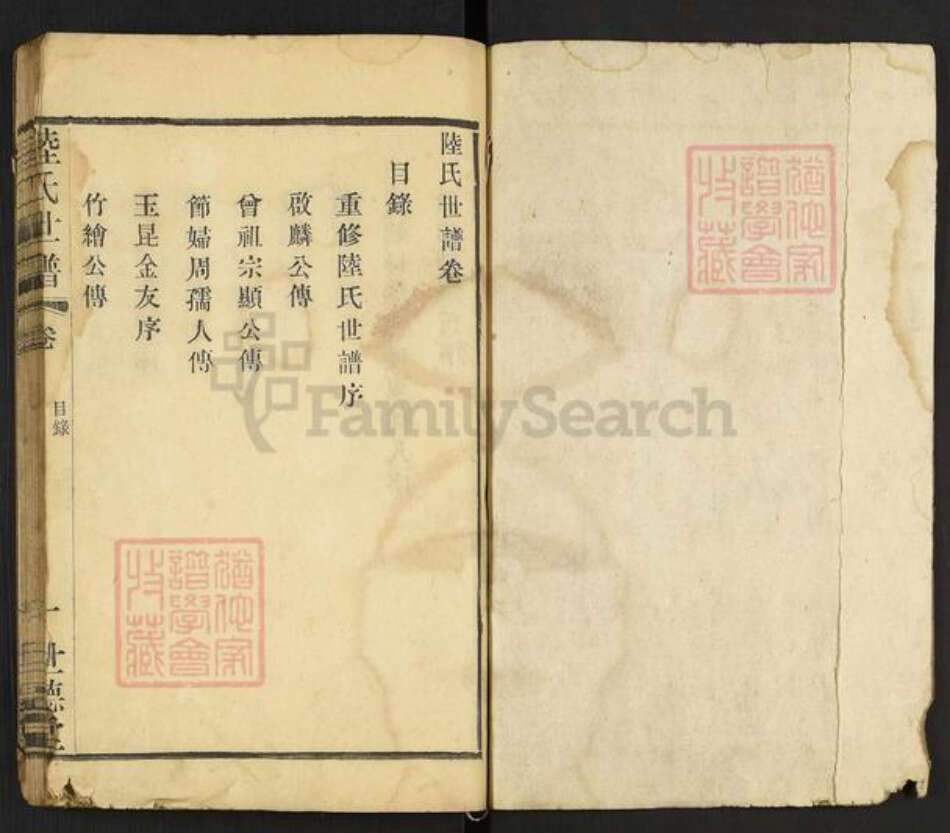 陸氏世譜卷
目錄
重修陸氏世譜序
啟麟公傳
曾祖宗顯公傳
節婦周孺人傳
玉昆金友序
竹繪公傳
陸氏世譜
卷
目錄
一
世德堂
FamilySearch